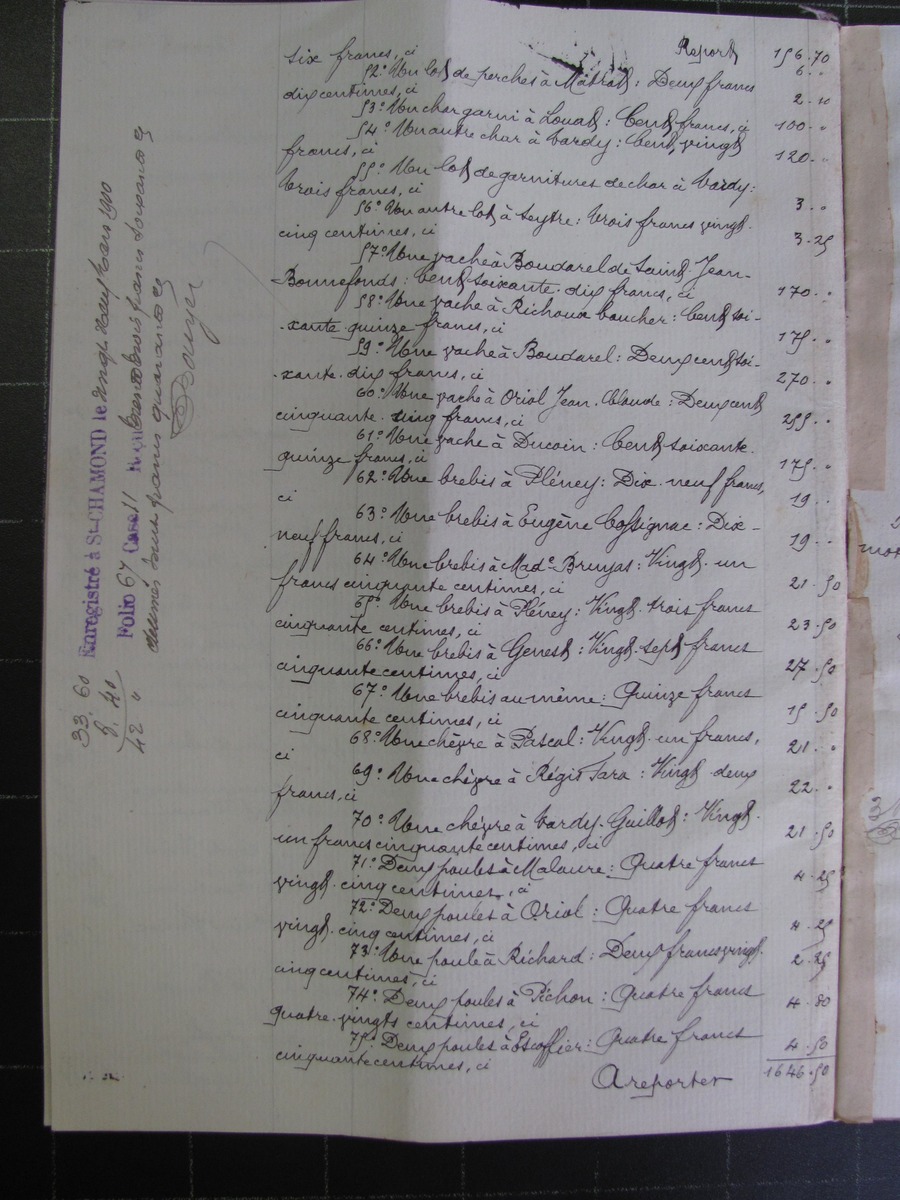 Report 156.70
six francs, ci 6 "
52° Un lot de perches à Matrat: Deux francs
dix centimes, ci 2.10
53° Un char garni à Louat: Cent francs, ci 100 "
54° Un autre char à Vardy: Cent vingt
francs, ci 120 "
55° Un lot de garnitures de char à Vardy:
trois francs, ci 3 "
56° Un autre lot à Seytre: trois francs vingt
cinq centimes, ci 3.25
57° Une vache à Boudarel de Saint-Jean-
Bonnefonds: Cent soixante-dix francs, ci 170 "
58° Une vache à Richoux boucher: Cent soi-
xante quinze francs, ci 175 "
59° Une vache à Boudarel: Deux cent soi-
xante-dix francs, ci 270 "
60° Une vache à Oriol Jean-Claude: Deux cent
cinquante-cinq francs, ci 255 "
61° Une vache à Ducoin: Cent soixante
quinze francs, ci 175 "
62° Une brebis à Pléney: Dix-neuf francs,
ci 19 "
63° Une brebis à Eugène Cossignac: Dix-
neuf francs, ci 19 "
64° Une brebis à Made Brunjas: Vingt-un
francs cinquante centimes, ci 21.50
65° Une brebis à Pléney: Vingt-trois francs
cinquante centimes, ci 23.50
66° Une brebis à Genest: Vingt-sept francs
cinquante centimes, ci 27.50
67° Une brebis au même: Quinze francs
cinquante centimes, ci 15.50
68° Une chèvre à Pascal: Vingt-un francs,
ci 21 "
69° Une chèvre à Régis Fara: Vingt-deux
francs, ci 22 "
70° Une chèvre à Vardy-Guillot: Vingt-
un francs cinquante centimes, ci 21.50
71° Deux poules à Malaure: Quatre francs
vingt-cinq centimes, ci 4.25
72° Deux poules à Oriol: Quatre francs
vingt-cinq centimes, ci 4.25
73° Une poule à Richard: Deux francs vingt-
cinq centimes, ci 2.25
74° Deux poules à Pichon: Quatre francs
quatre-vingts centimes, ci 4.80
75° Deux poules à Escoffier: Quatre francs
cinquante centimes, ci 4.50
A reporter 1646.50
Enregistré à St-CHAMOND le vingt neuf Mars 1900
Folio 67 Case 11 Reçu trente trois francs soixante c
décimes huit francs quarante c
33.60
8.40
42 "